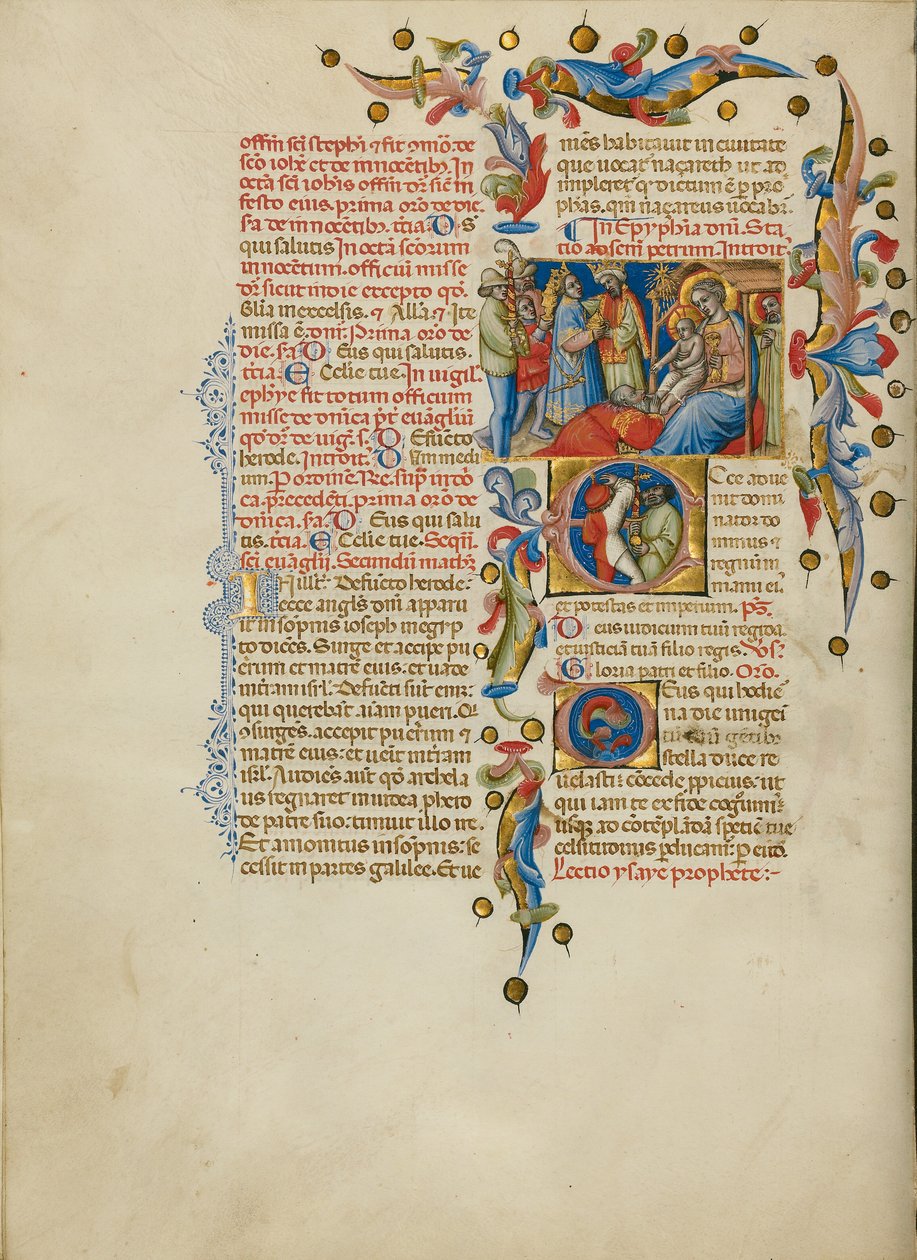 offm̄ sc̄i stephi ⁊ fit ꝯmō. de
sc̄o ioh̄e et de innocētib;. In
octā sc̄i ioh̄is offm̄ dr̄ sic̄ in
festo eius. prima orō de die.
sa de innocētib;. t̄cia. Ds
qui salutis In octā sc̄orum
innocētum. officiū misse
dr̄ sicut in die excepto qō.
Glīa in excelsis. ⁊ All'a. ⁊ Ite
missa ē. dn̄i. Prima orō de
die. sa. Deus qui salutis.
t̄cia. Ecclīe tue. In uigil'
ephȳe fit totum officium
misse de dn̄ica p̄t euāgliū
qō dr̄ de uig'. s. Defūcto
herode. Introit. Dum medi
um. P ordinē. Re. sup̄ in dō
ca. p̄cedēti. prima orō de
dōnica. sa. Deus qui salu
tis. t̄cia. Ecclīe tue. Seq̄n̄.
sc̄i euāglii. Secundū math'
In illr̄. Defūcto herode:
ecce angl's dn̄i apparu
it in sōpnis ioseph in egyp
to dicēs. Surge et accipe pu
erum et matrē eius. et uade
in t̄ram isrl'. Defūcti sūt eni:
qui querebāt aīam pueri. Q
ꝯsurgēs. accepit puerum ⁊
matrē eius: et uēit in t̄ram
isrl'. Audiēs aūt qō archela
us regnaret in iudea p̄hero
de patre suo: timuit illo ire.
Et amonitus in sōpnis: se
cessit in partes galilee. Et ue
niēs habitauit in ciuitate
que uocat̄ naçareth ut ad
impleret̄ qr̄ dictum ē p̄ pro
phās. qm̄ naçareus uocabit̄.
In Epyphīa dn̄i. Sta
tio ad sc̄m petrum. Introit.
Ecce adue
nit domi
nator do
minus ⁊
regnū in
manu ei
et potestas et imperium. Ps.
Deus iudicium tuū regi da.
et iusticiā tuā filio regis. Vs.
Gloria patri et filio. Orō.
Deus qui hodier
na die unigēi
tū tuū gētib;
stella duce re
uelasti: cōcede p̄picius. ut
qui iam te ex fide cognouim'
usq; ad cōtēplādā spētiē tue
celsitudinis p̄ducam̄. P eūd.
Lectio ysaye prophete:-